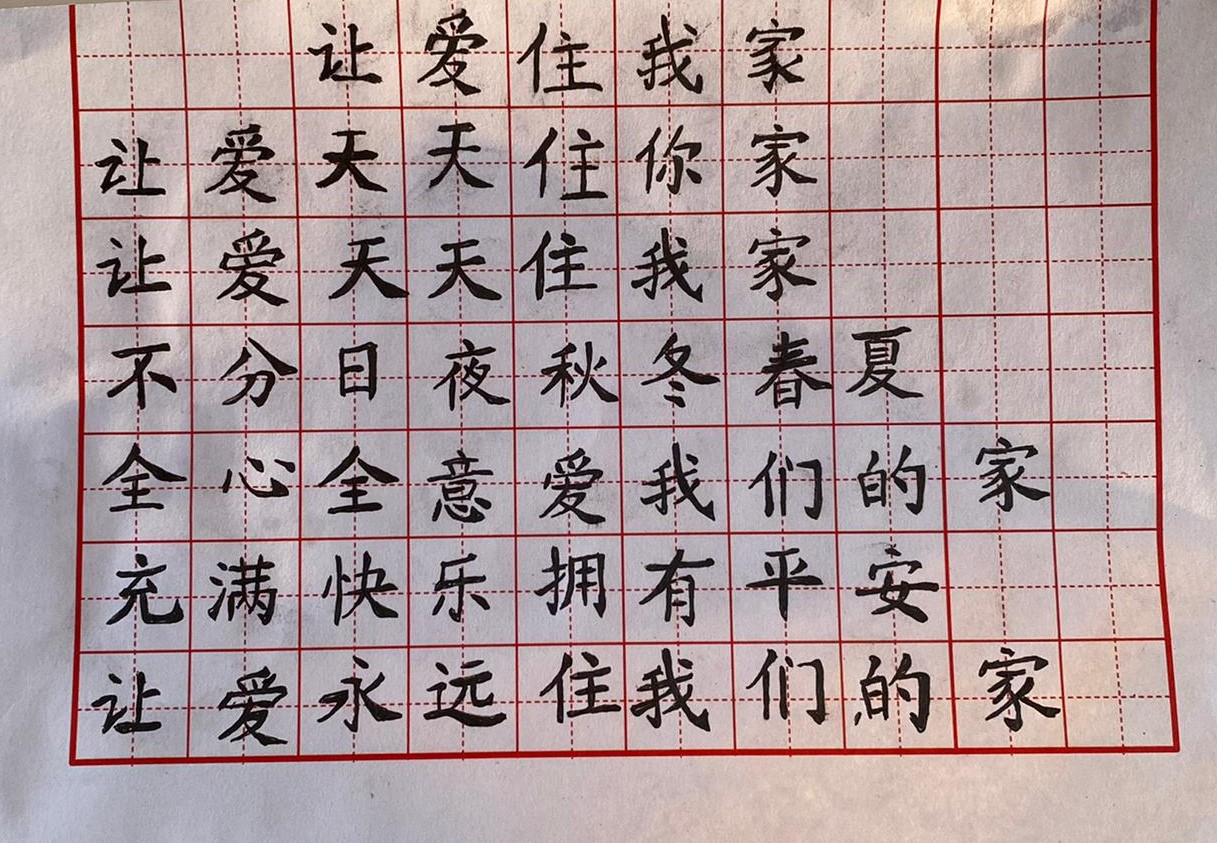 让爱住我家
让爱天天住你家
让爱天天住我家
不分日夜秋冬春夏
全心全意爱我们的家
充满快乐拥有平安
让爱永远住我们的家